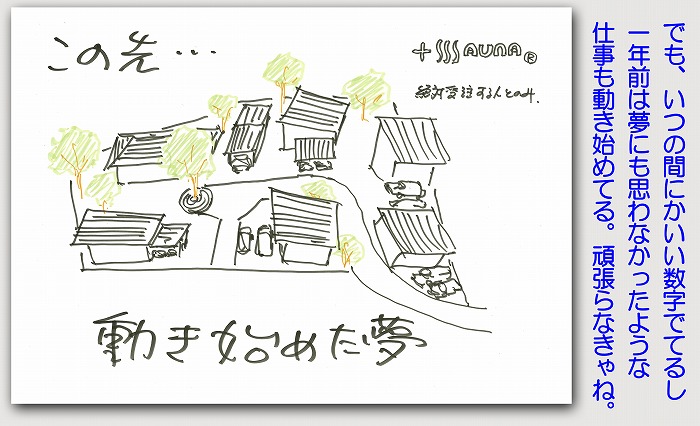 この先…
+SSSAUNA®
絶対受注する人とのみ.
動き始めた夢
でも、いつの間にかいい数字でてるし
一年前は夢にも思わなかったような
仕事も動き始めてる。頑張らなきゃね。